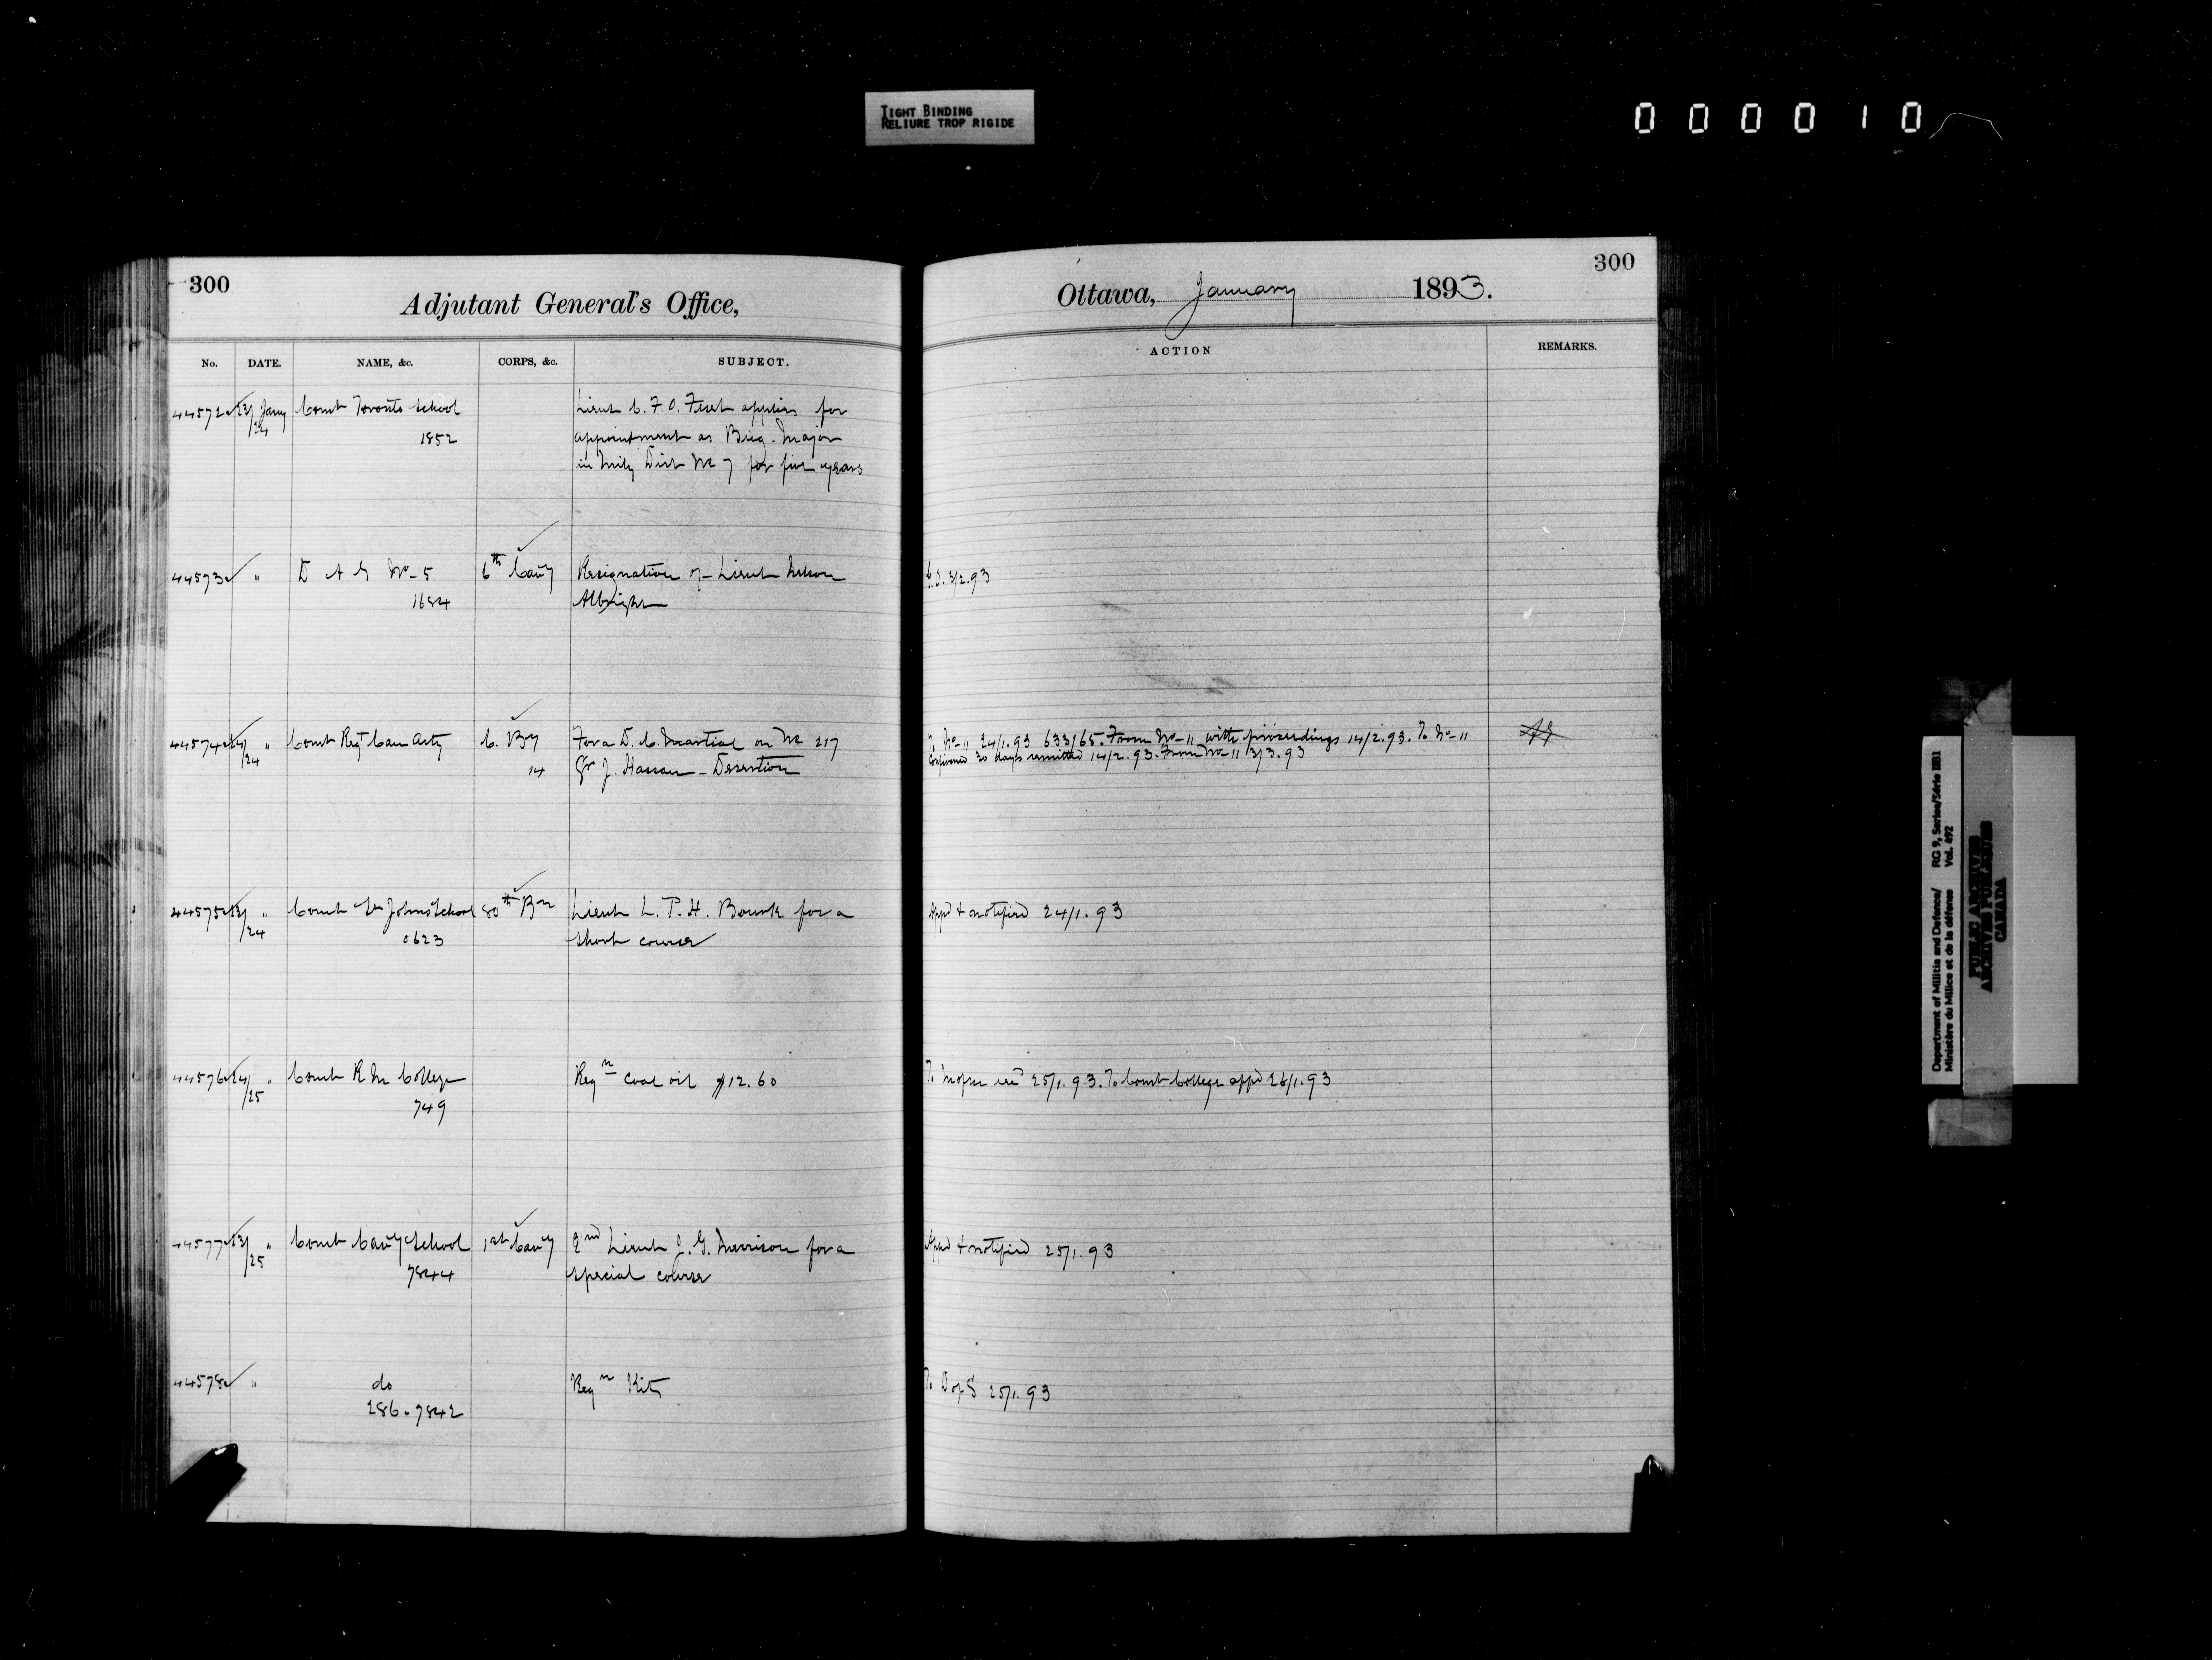 TIGHT BINDING
RELIURE TROP RIGIDE
000010
300
Adjutant General's Office,
No. DATE. NAME, &c. CORPS, &c. SUBJECT.
44572 23/24 Jany Comt Toronto School Lieut C. F. O. applies for
1852 appointment as Brig. Major
in Mily Dist No 7 for five years
44573 " D A G No 5 6th Cavy Resignation of Lieut Nelson
1684 Albright
44574 24/24 " Comt Regt Can Arty C. By For a D. C. Martial on No 217
14 Gr J. Hassan - Desertion
44575 23/24 " Comt St Johns School 80th Bn Lieut L. P. H. Bourk for a
0623 short course
44576 24/25 " Comt R M College Reqn Coal oil $12.60
749
44577 23/25 " Comt Cavy School 1st Cavy 2nd Lieut J. G. Morrison for a
7844 special course
44578 " do Reqn Kits
286-7842
300
Ottawa, January 1893.
ACTION REMARKS.
G.O. 3/2.93
To No 11 24/1.93 633/65. From No 11 with proceedings 14/2.93. To No 11
Confirmed 30 days remitted 14/2.93. From No 11 3/3.93
Appd & notified 24/1.93
To 25/1.93. To Comt College appd 26/1.93
Appd & notified 25/1.93
To D of S 25/1.93
Department of Militia and Defence/ RG 9, Series/Série IIB1
Ministère du Milice et de la défense Vol. 492
PUBLIC ARCHIVES
ARCHIVES PUBLIQUES
CANADA